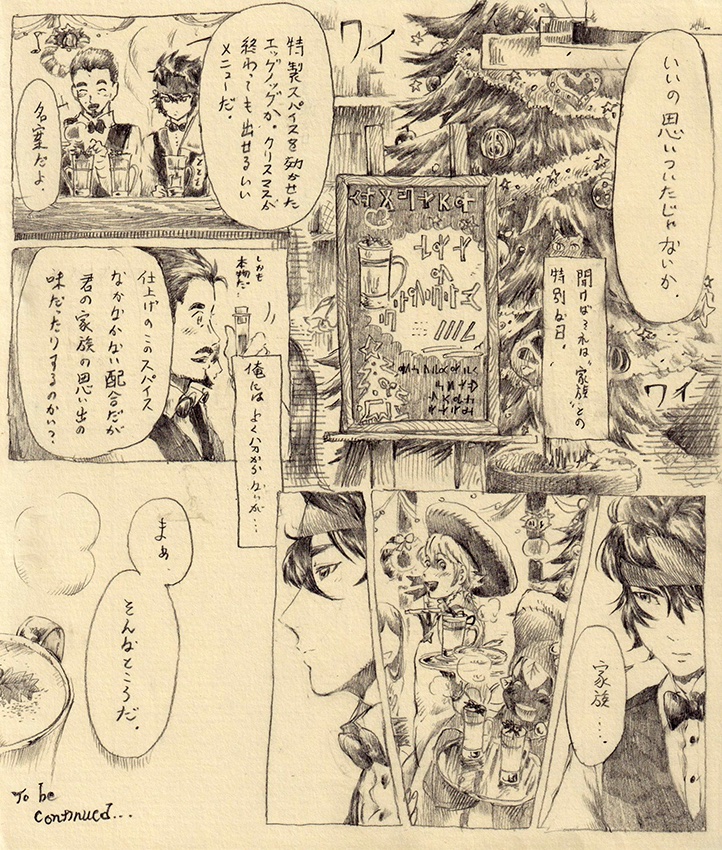 いいの思いついたじゃないか。
ワイ
特製スパイスを効かせた
エッグノッグか。クリスマスが
終わっても出せるいい
メニューだ。
名案だよ。
聞けばそれは、"家族"との
特別な日。
ワイ
しかも
本物だ…
仕上げのこのスパイス
なかなかない配合だが
君の家族の思い出の
味だったりするのかい？
俺にはよく分からないが…
家族…。
まぁ。
そんなところだ。
To be
continued...